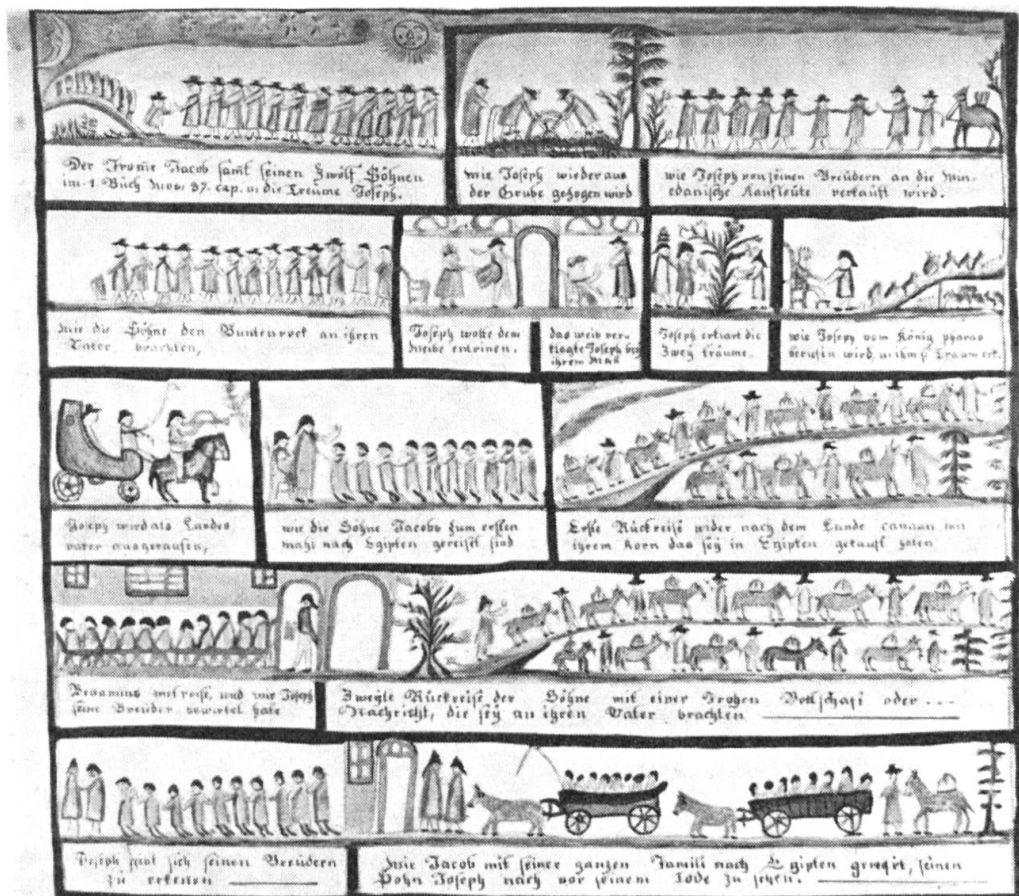 Der Frome Jacob samt seinen Zwölf Söhnen
im 1. Buch Mos: 37. cap. u: die Treume Joseph.
wie Joseph wieder aus
der Grube gezogen wird
wie Joseph von seinen Breüdern an die Mid-
edanische Kaufleüte verkauft wird.
wie die Söhne den Buntenroct an ihren
Vater, brachten,
Joseph wolte dem
Weibe entrinen.
das weib ver-
klagte Joseph bey
ihrem Man
Joseph erklärt die
Zwey träume.
wie Joseph vom König pharao
berufen wird, u: ihm s: Traum erk.
Joseph wird als Landes,
vater ausgerufen,
wie die Söhne Jacobs zum ersten
mahl nach Egipten gereiset sind
Erste Rückreise wider nach dem Lande canaan mit
ihrem Korn das sey in Egipten gekauft haten
mitreise, und wie Joseph
seine Breüder bewirtet hate
Zweyte Rückreise der Söhne mit einer Frohen Bottschaft oder ---
Nachricht, die sey an ihren Vater brachten
Joseph gibt sich seinen Breüdern
zu erkenen
Wie Jacob mit seiner ganzen Famili nach Egipten gereist, seinen
Sohn Joseph noch vor seinem Tode zu sehen.